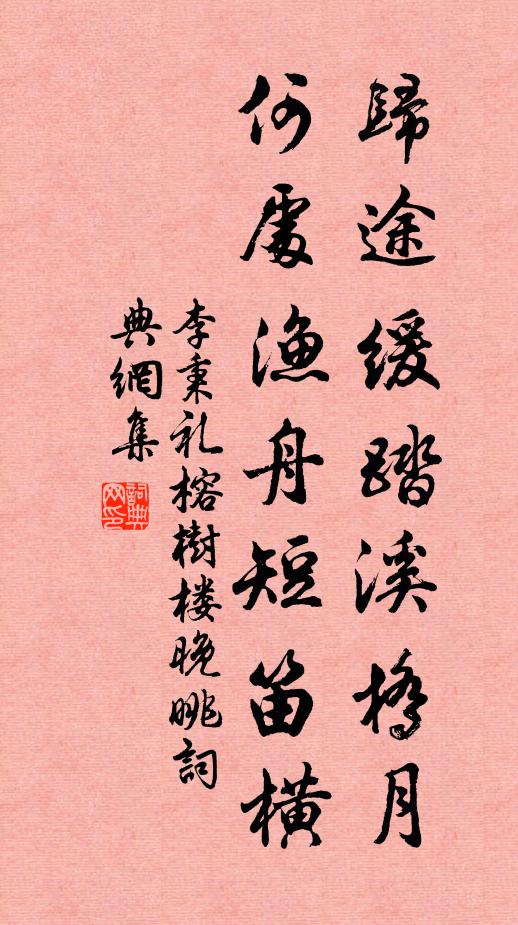 歸途緩踏溪橋月
何處漁舟短笛橫
李秉礼榕樹楼晚眺詞
典網集
詞典网印